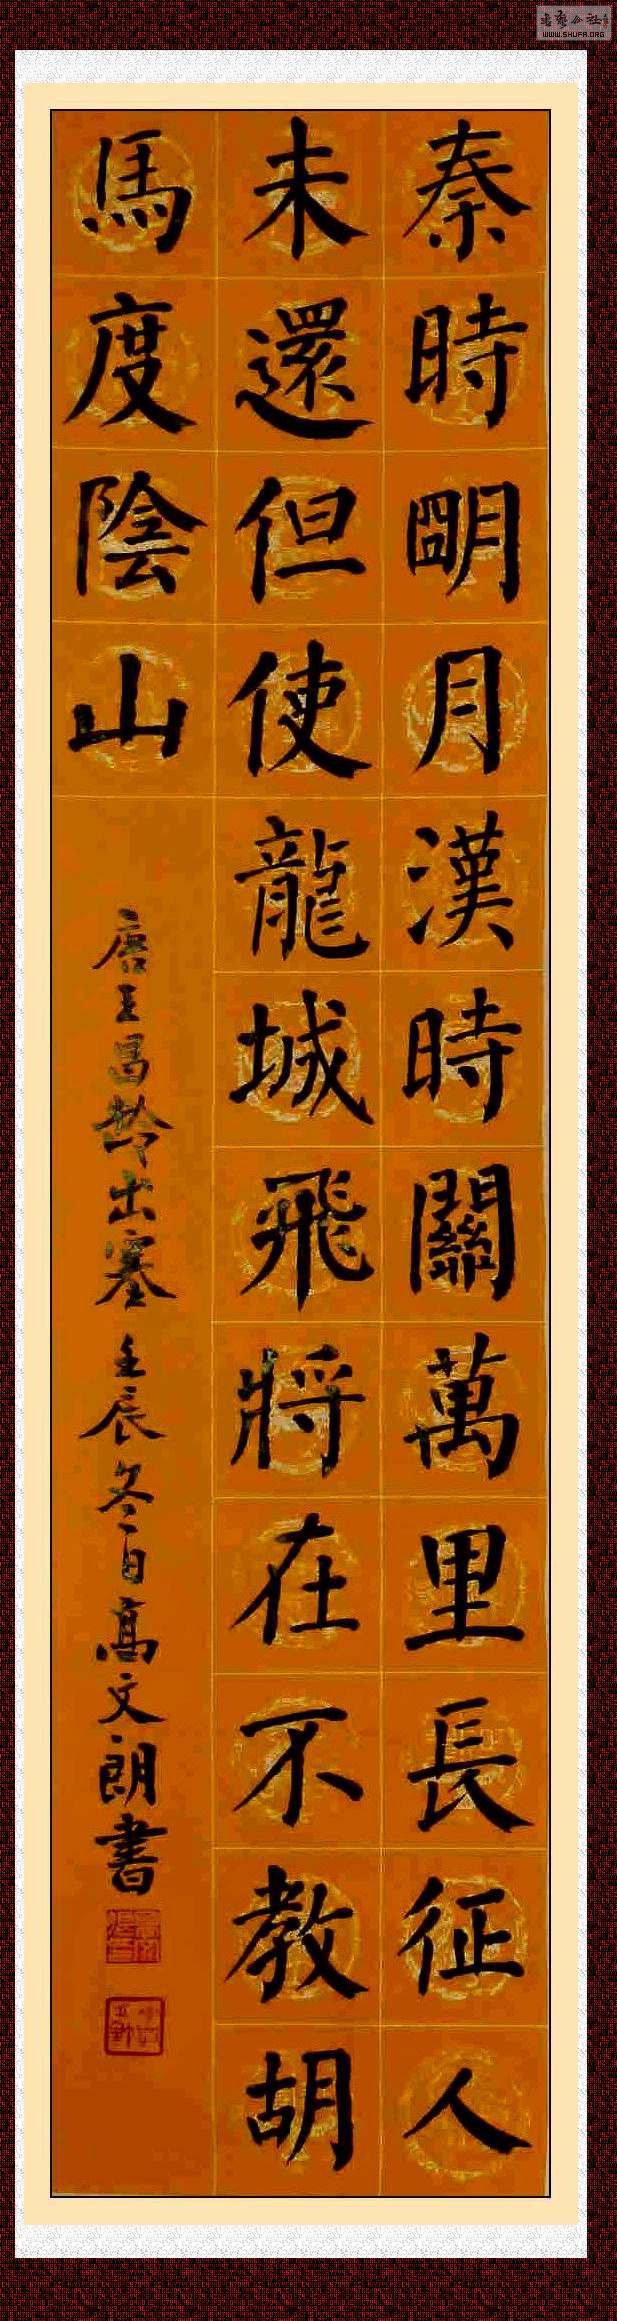 秦時明月漢時關萬里長征人
未還但使龍城飛將在不教胡
馬度陰山
唐王昌齡出塞 壬辰冬日高文朗書
WWW.SHUFA.ORG